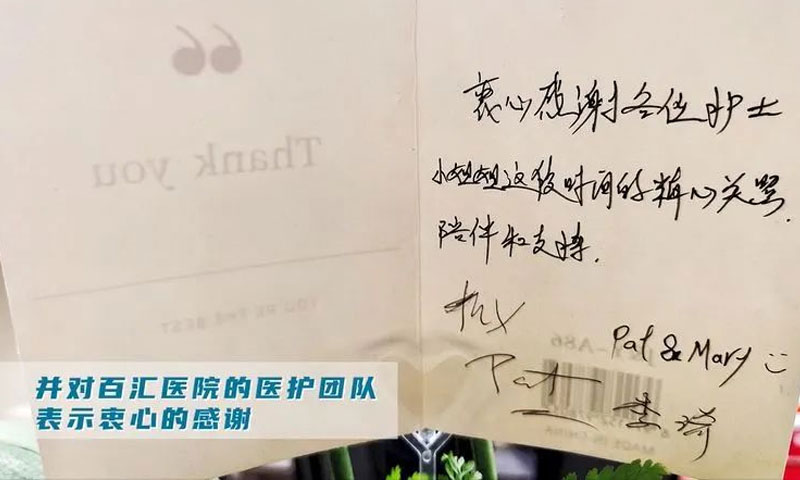 Thank you
YOU'RE THE BEST
衷心感谢各位护士
小姐姐这段时间的精心关照,
陪伴和支持.
Pat & Mary
Pat
A86
MADE IN CHINA
并对百汇医院的医护团队
表示衷心的感谢